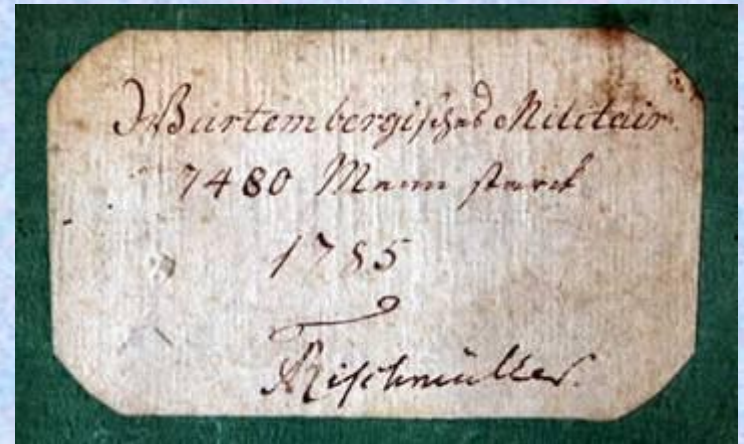 Würtembergisches Militair.
7480 Mann starck
1785
Rischmüller.